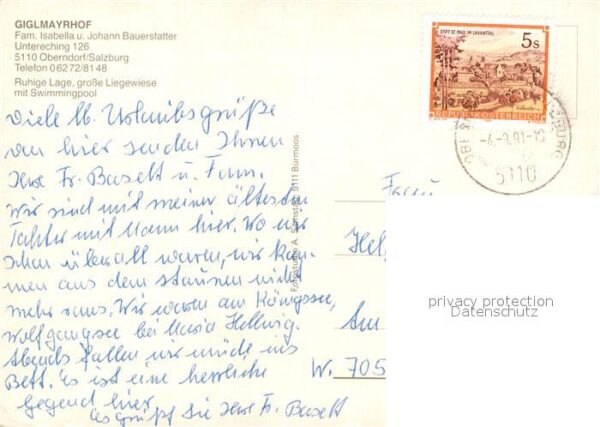 GIGLMAYRHOF
Fam. Isabella u. Johann Bauerstatter
Untereching 126
5110 Oberndorf/Salzburg
Telefon 0 62 72/81 48
Ruhige Lage, große Liegewiese
mit Swimmingpool
STIFT ST. PAUL IM LAVANTTAL
5s
REPUBLIK ÖSTERREICH
-4.-9.91-18
5110
Viele lb. Urlaubsgrüße
von hier senden Ihnen
Ihre Fr. Basett u. Fam.
Wir sind mit meiner ältesten
Tochter mit Mann hier. Wo wir
schon überall waren, wir kom-
men aus dem staunen nicht
mehr raus. Wir waren am Königssee,
Wolfgangsee bei Maria Hellwig.
Abends fallen wir müde ins
Bett. Es ist eine herrliche
Gegend hier.
Es grüßt Sie Ihre Fr. Basett
5111 Bürmoos
Frau
Hel
Am
W. 705
privacy protection
Datenschutz